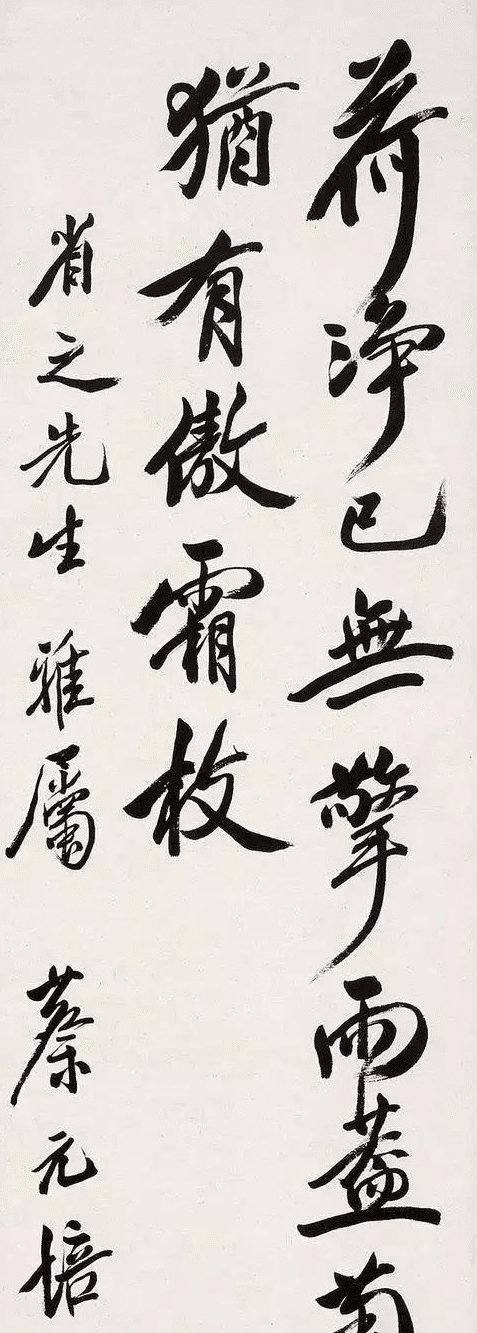 荷净已無擎雨蓋菊
猶有傲霜枝
省之先生 雅屬 蔡元培